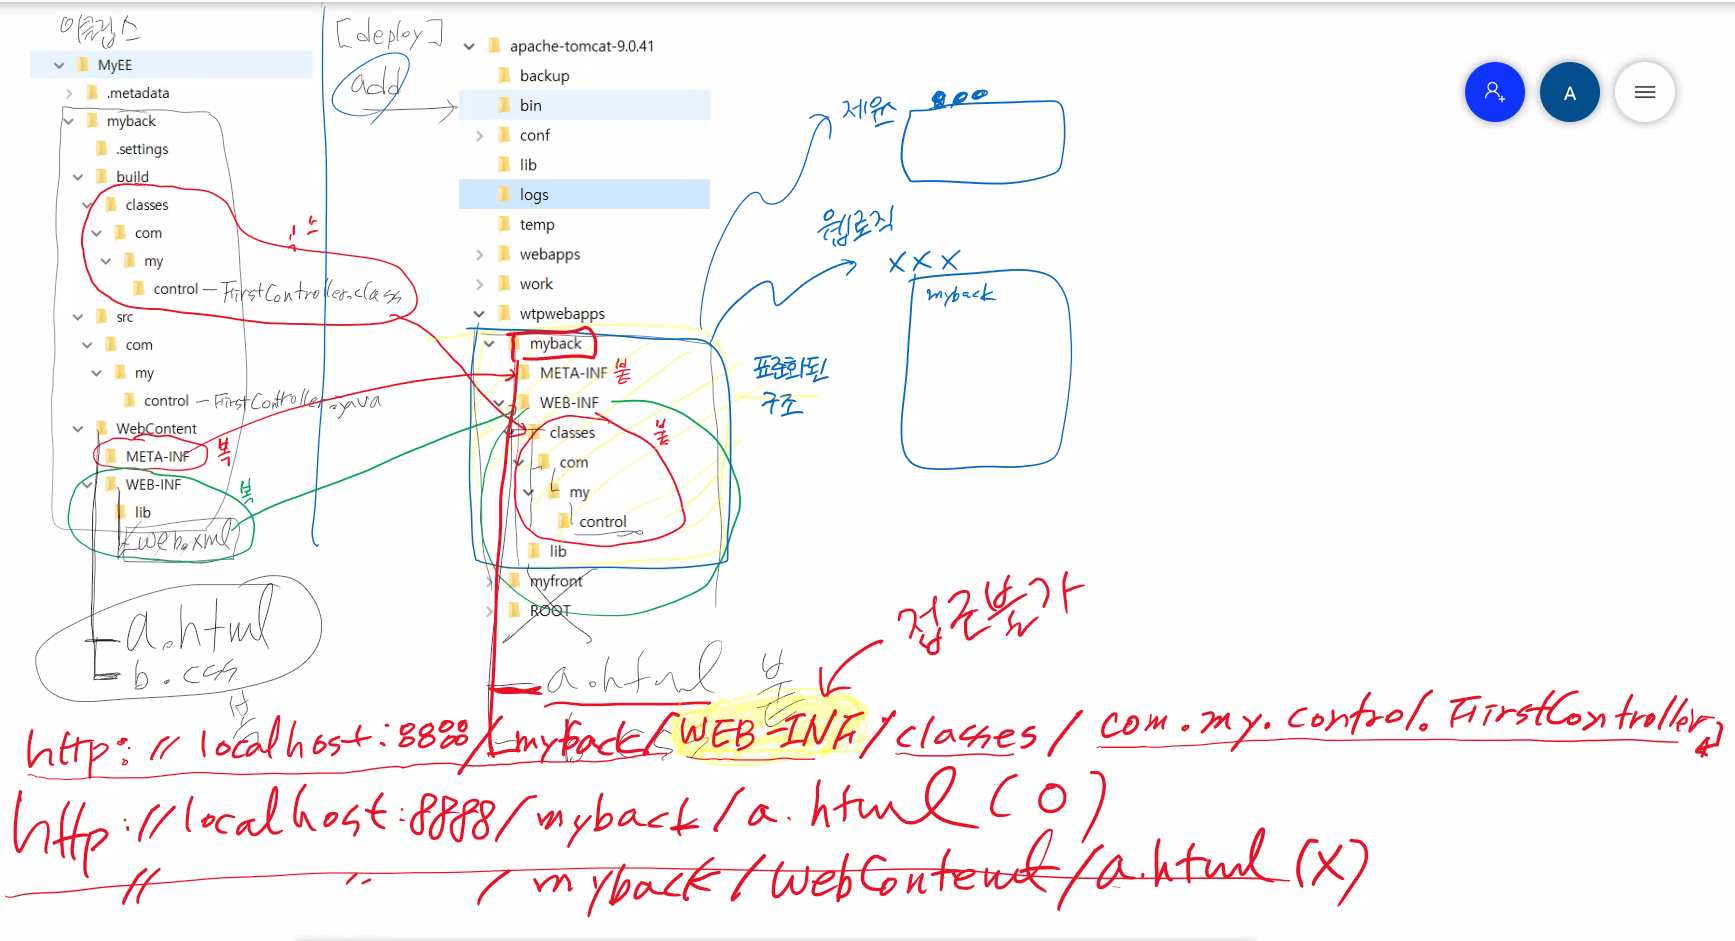 이클립스
MyEE
.metadata
myback
.settings
build
classes
com
my
control - FirstController.class
src
com
my
control - FirstController.java
WebContent
META-INF 복
WEB-INF 복
lib
web.xml
a.html
b.css
[deploy]
add
apache-tomcat-9.0.41
backup
bin
conf
lib
logs
temp
webapps
work
wtpwebapps
myback
META-INF 붙
WEB-INF
classes 붙
com
my
control
lib
myfront
ROOT
a.html 붙
제우스
웹로직
XXX
myback
표준화된
구조
A
접근불가
http://localhost:8888/myback/WEB-INF/classes/com.my.control.FirstController
http://localhost:8888/myback/a.html (O)
// " /myback/WebContent/a.html (X)